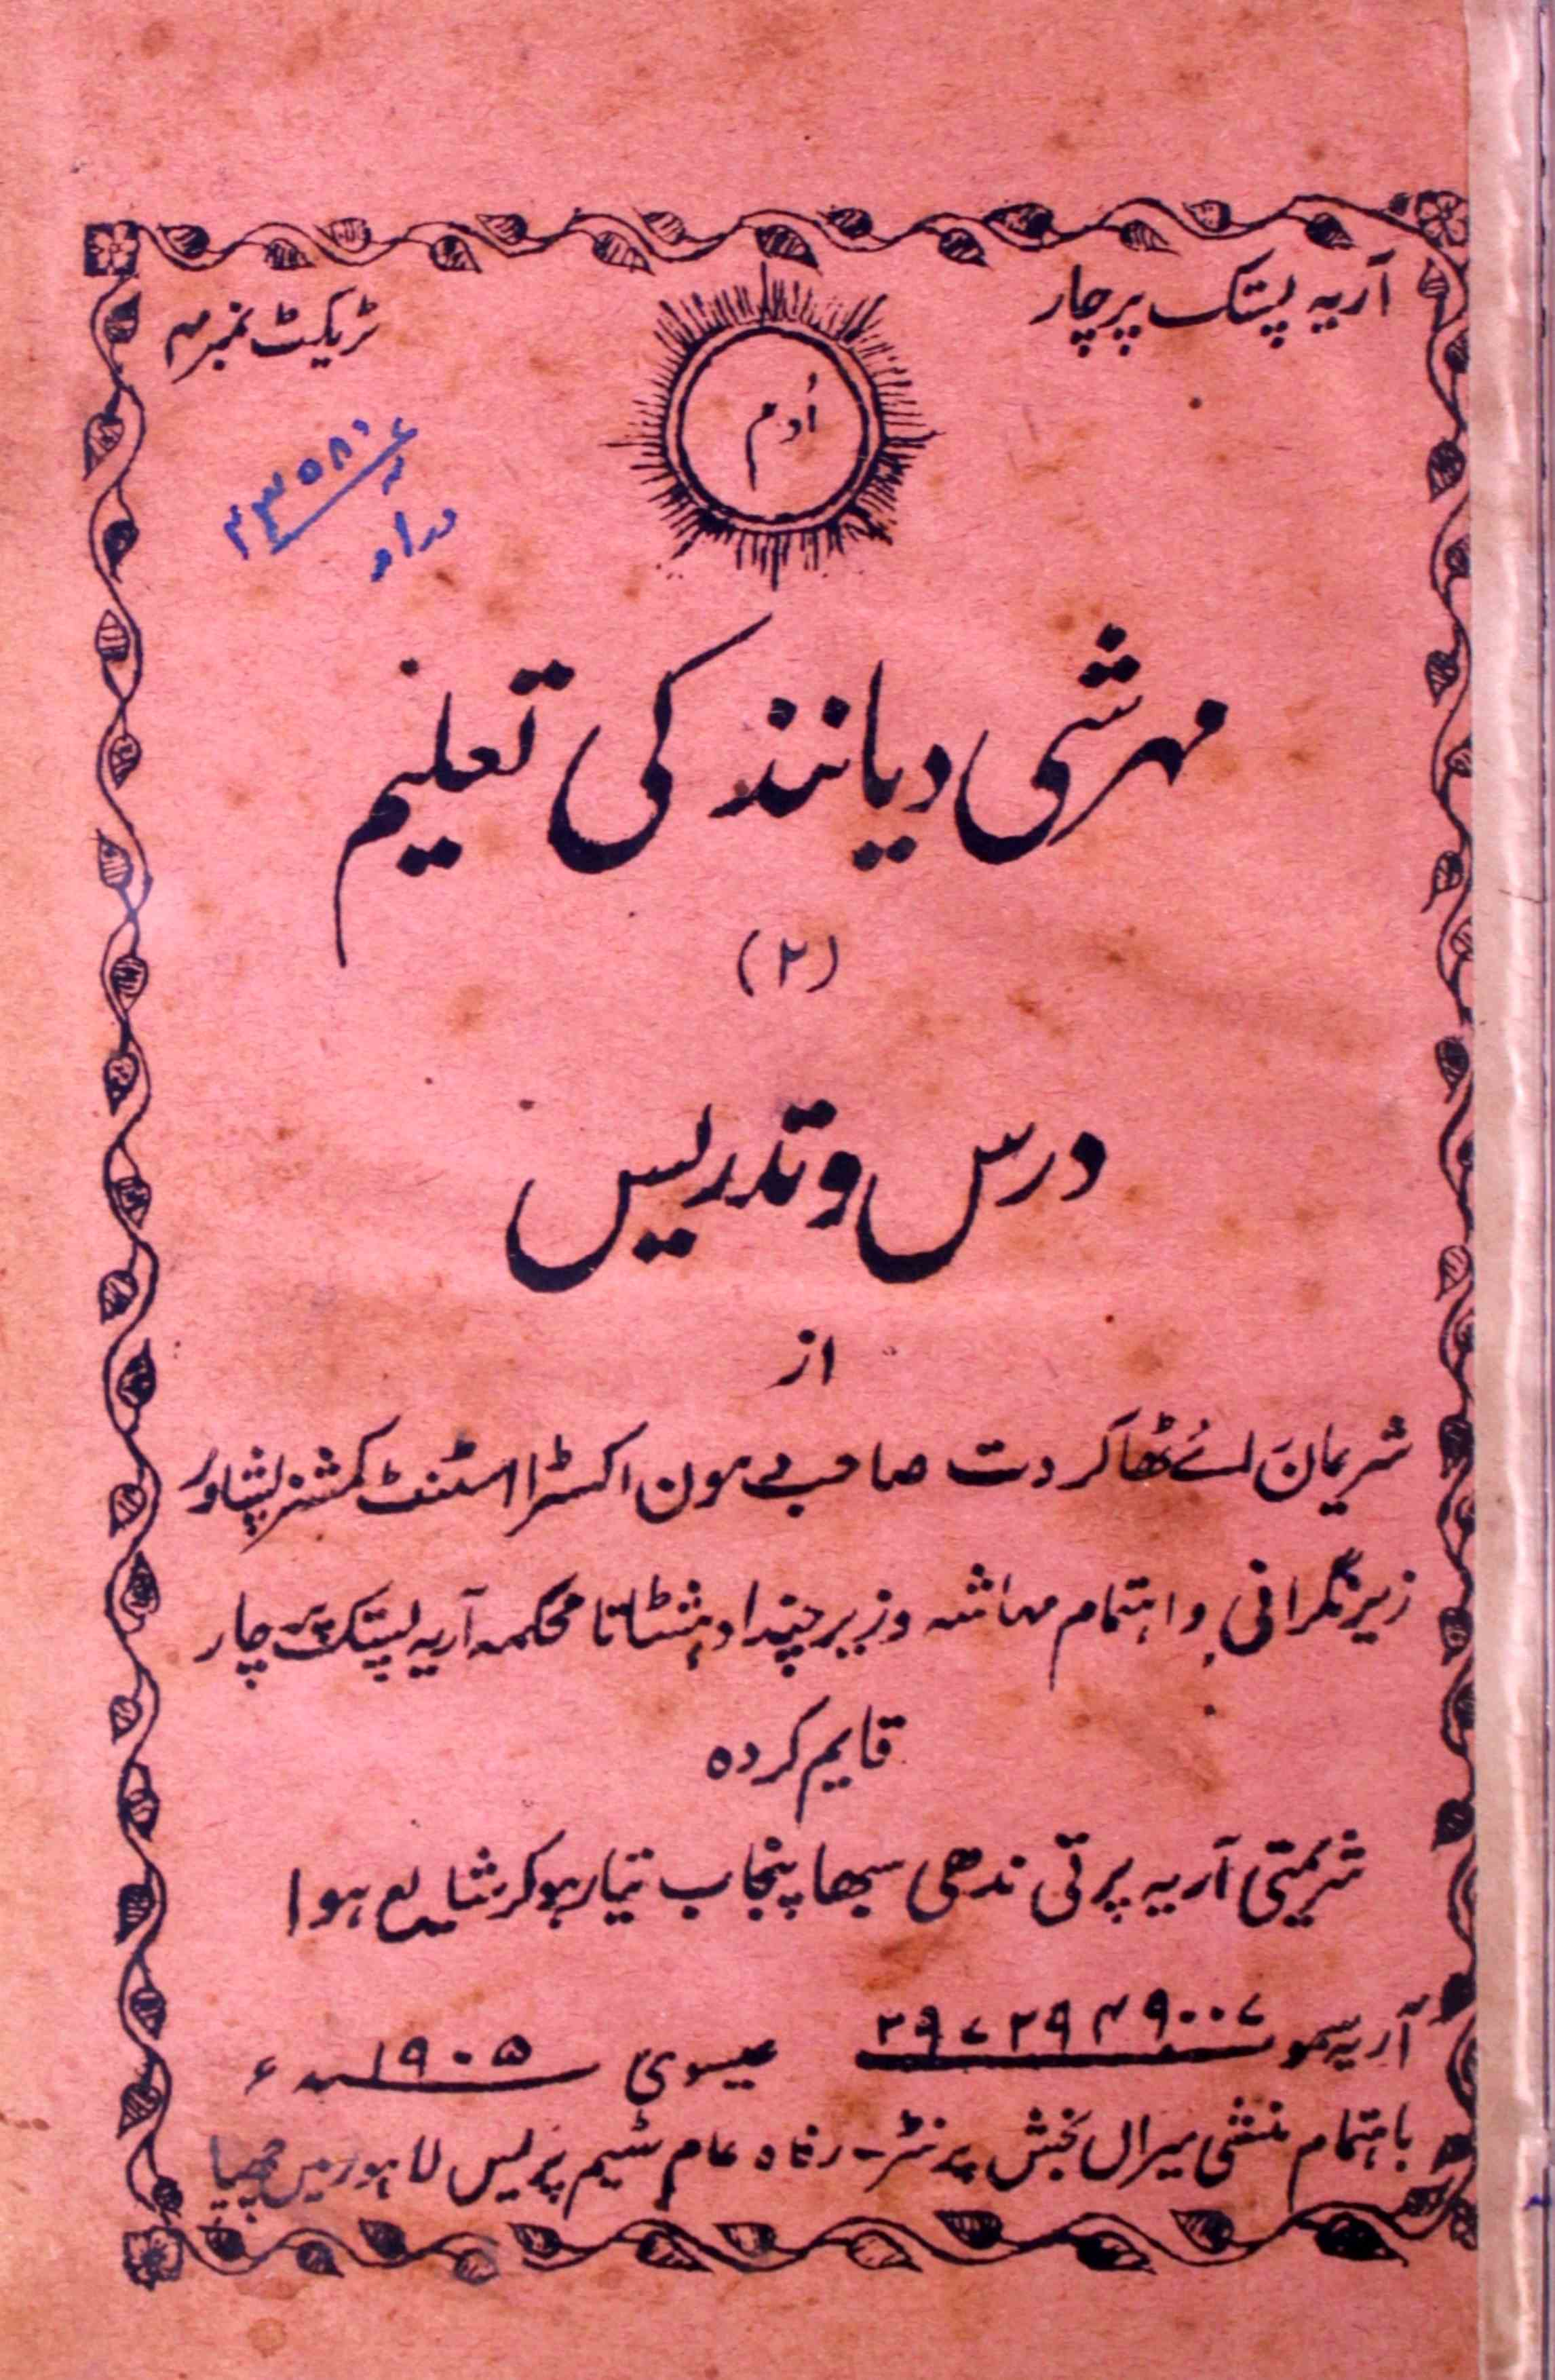 آریہ پستک پرچار
ٹریکٹ نمبر ۴
اوم
مہرشی دیانند کی تعلیم
(۲)
درس و تدریس
از
شریمان رائے ٹھاکر دت صاحب دھون اکسٹرا اسسٹنٹ کمشنر پشاور
زیر نگرانی و اہتمام مہاشہ وزیر چند ادہشٹاتا محکمہ آریہ پستک پرچار
قایم کردہ
شریمتی آریہ پرتی ندھی سبھا پنجاب تیار ہوکر شایع ہوا
آریہ سمو ۲۹۷۲۹۴۹۰۰۷ عیسوی ۱۹۰۵ء
باہتمام منشی میراں بخش پرنٹر - رفاہ عام سٹیم پریس لاہور میں چھپا